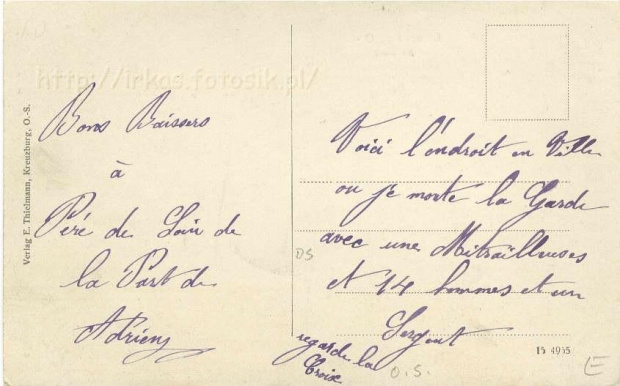 http://irkas.fotosik.pl/
Verlag E. Thielmann, Kreuzburg, O.-S.
Bons Baisers
à
Péré de Loin de
la Part de
Adrien
Voici l'endroit en Ville
ou je monte la Garde
avec une Mitrailleuses
et 14 hommes et un
Sergent
regarde la
Croix
OS
O.S.
15 4955
E